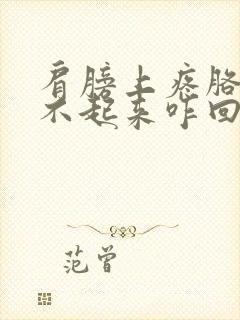 肩膀上疼胳
不起来咋回
范曾